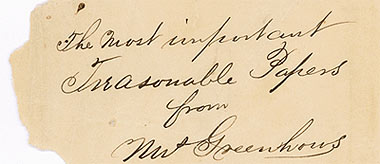 The Most important
Treasonable Papers
from
Mrs Greenhows